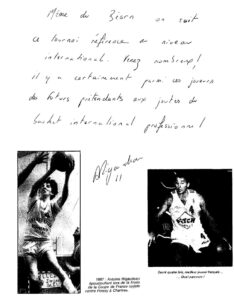 Même du Béarn on suit
ce tournoi référence au niveau
international. Venez nombreux!
il y a certainement parmi ces joueurs
de futurs prétendants aux joutes du
basket international professionnel!
11
1987 : Antoine Rigaudeau
époustouflant lors de la finale
de la Coupe de France cadets
contre Poissy à Chartres.
meilleur joueur français ...
... Quel parcours !